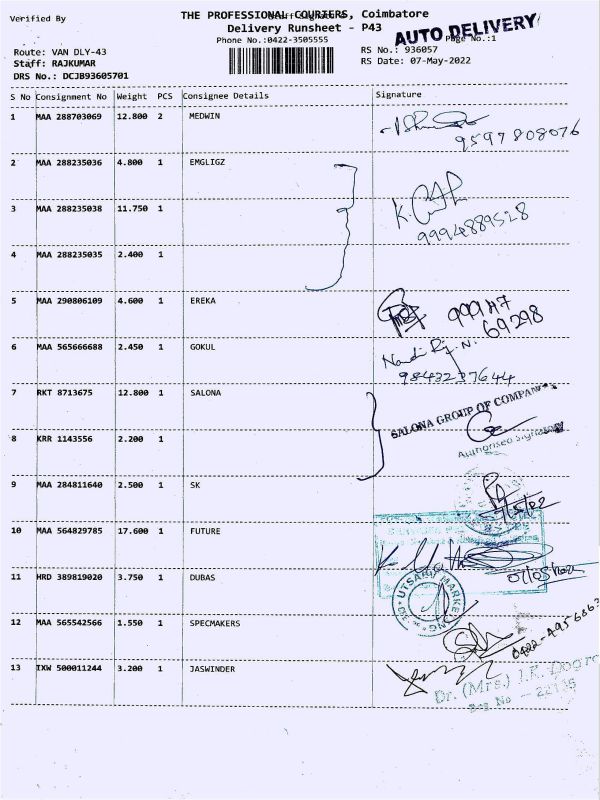 Verified By
THE PROFESSIONAL COURIERS, Coimbatore
Delivery Runsheet - P43
AUTO DELIVERY
Phone No.:0422-3505555
Page No.:1
Route: VAN DLY-43
RS No.: 936057
Staff: RAJKUMAR
RS Date: 07-May-2022
DRS No.: DCJB93605701
S No Consignment No Weight PCS Consignee Details Signature
1 MAA 288703069 12.800 2 MEDWIN
9597808076
2 MAA 288235036 4.800 1 EMGLIGZ
3 MAA 288235038 11.750 1
9994889528
4 MAA 288235035 2.400 1
5 MAA 290806109 4.600 1 EREKA
99947
69298
6 MAA 565666688 2.450 1 GOKUL
9843237644
7 RKT 8713675 12.800 1 SALONA
SALONA GROUP OF COMPANY
8 KRR 1143556 2.200 1
Authorised Signatory
9 MAA 284811640 2.500 1 SK
10 MAA 564829785 17.600 1 FUTURE
11 HRD 389819020 3.750 1 DUBAS
UTSARV MARKE
12 MAA 565542566 1.550 1 SPECMAKERS
13 IXW 500011244 3.200 1 JASWINDER
Dr. (Mrs.) J.K. Dogra
Reg No - 22135